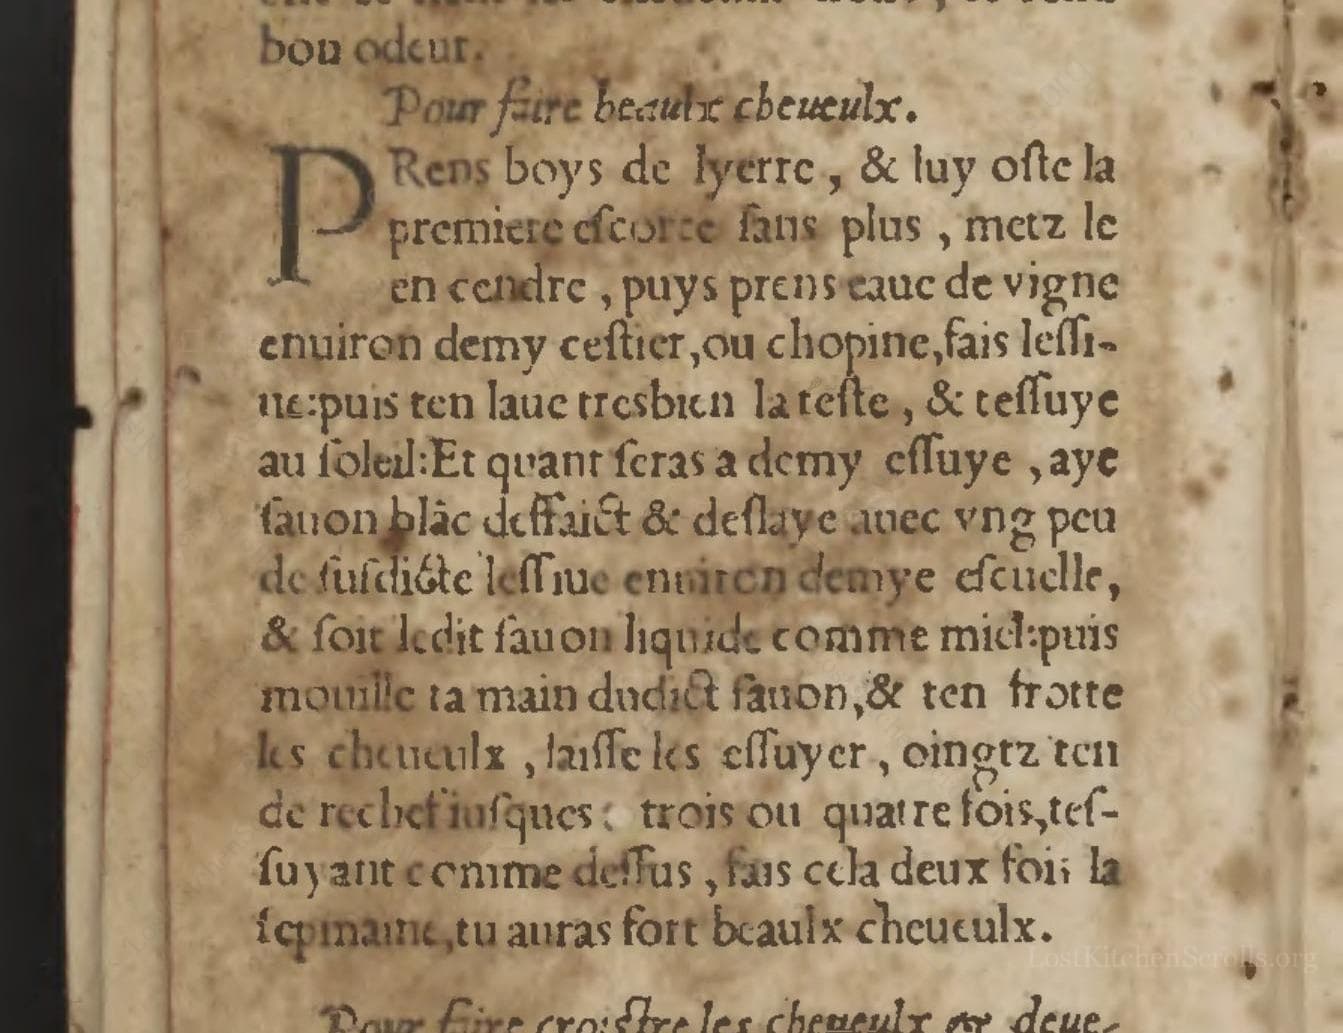 bon odeur.
Pour faire beaulx cheueulx.
PRens boys de lyerre, & luy oſte la
premiere eſcorce ſans plus, metz le
en cendre, puys prens eauc de vigne
enuiron demy ceſtier,ou chopine,fais leſſi-
ue:puis ten laue tresbien la teſte, & teſſuye
au ſoleil:Et quant ſeras a demy eſſuye, aye
ſauon blãc deffaict & deſlaye auec vng peu
de ſuſdicte leſſiue enuiron demye eſcuelle,
& ſoit ledit ſauon liquide comme miel:puis
mouille ta main dudict ſauon,& ten frotte
les cheueulx, laiſſe les eſſuyer, oingtz ten
de rechef iuſques trois ou quatre fois,teſ-
ſuyant comme deſſus, fais cela deux fois la
ſepmaine,tu auras fort beaulx cheueulx.
LostKitchenScrolls.org
Pour faire croiſtre les cheueulx & deue-